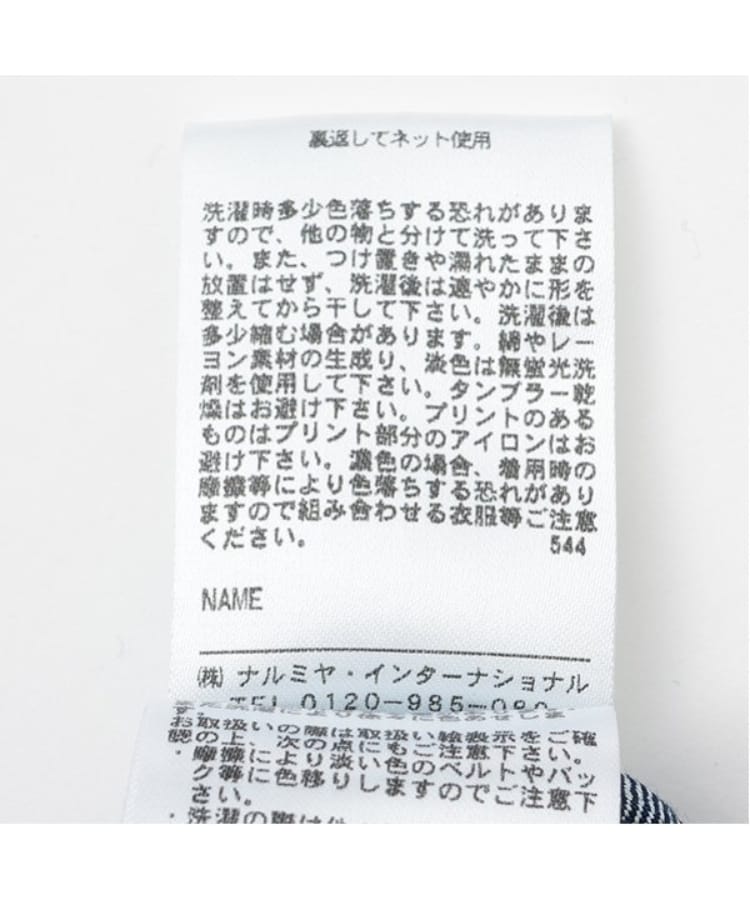 裏返してネット使用
洗濯時多少色落ちする恐れがありま
すので、他の物と分けて洗って下さ
い。また、つけ置きや濡れたままの
放置はせず、洗濯後は速やかに形を
整えてから干して下さい。洗濯後は
多少縮む場合があります。綿やレー
ヨン素材の生成り、淡色は無蛍光洗
剤を使用して下さい。タンブラー乾
燥はお避け下さい。プリントのある
ものはプリント部分のアイロンはお
避け下さい。濃色の場合、着用時の
摩擦等により色落ちする恐れがあり
ますので組み合わせる衣服等ご注意
ください。 544
NAME
㈱ ナルミヤ・インターナショナル
TEL 0120-985-080
お取扱いの際は取扱い絵表示をご確
認の上、次の点にもご注意下さい。
・摩擦により淡い色のベルトやバッ
グ等に色移りしますのでご注意下
さい。
・洗濯の際は他